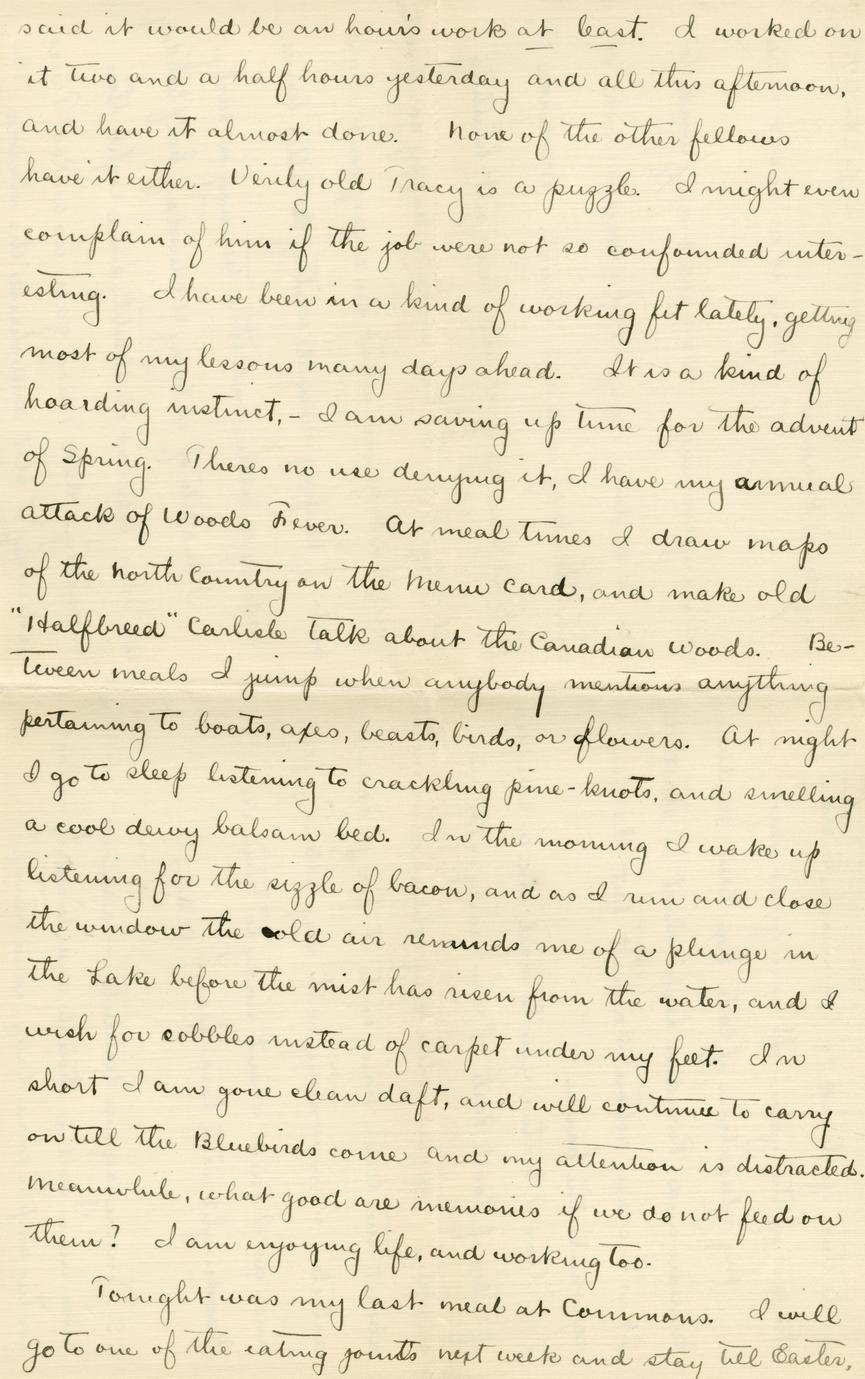 said it would be an hour's work at least. I worked on
it two and a half hours yesterday and all this afternoon,
and have it almost done. None of the other fellows
have it either. Verily old Tracy is a puzzle. I might even
complain of him if the job were not so confounded inter-
esting. I have been in a kind of working fit lately, getting
most of my lessons many days ahead. It is a kind of
hoarding instinct, - I am saving up time for the advent
of Spring. Theres no use denying it, I have my annual
attack of Woods Fever. At meal times I draw maps
of the North Country on the Menu card, and make old
"Halfbreed" Carlisle talk about the Canadian woods. Be-
tween meals I jump when anybody mentions anything
pertaining to boats, axes, beasts, birds, or flowers. At night
I go to sleep listening to crackling pine-knots, and smelling
a cool dewy balsam bed. In the morning I wake up
listening for the sizzle of bacon, and as I run and close
the window the cold air reminds me of a plunge in
the Lake before the mist has risen from the water, and I
wish for cobbles instead of carpet under my feet. In
short I am gone clean daft, and will continue to carry
on till the Bluebirds come and my attention is distracted.
Meanwhile, what good are memories if we do not feed on
them? I am enjoying life, and working too.
Tonight was my last meal at Commons. I will
go to one of the eating joints next week and stay till Easter,